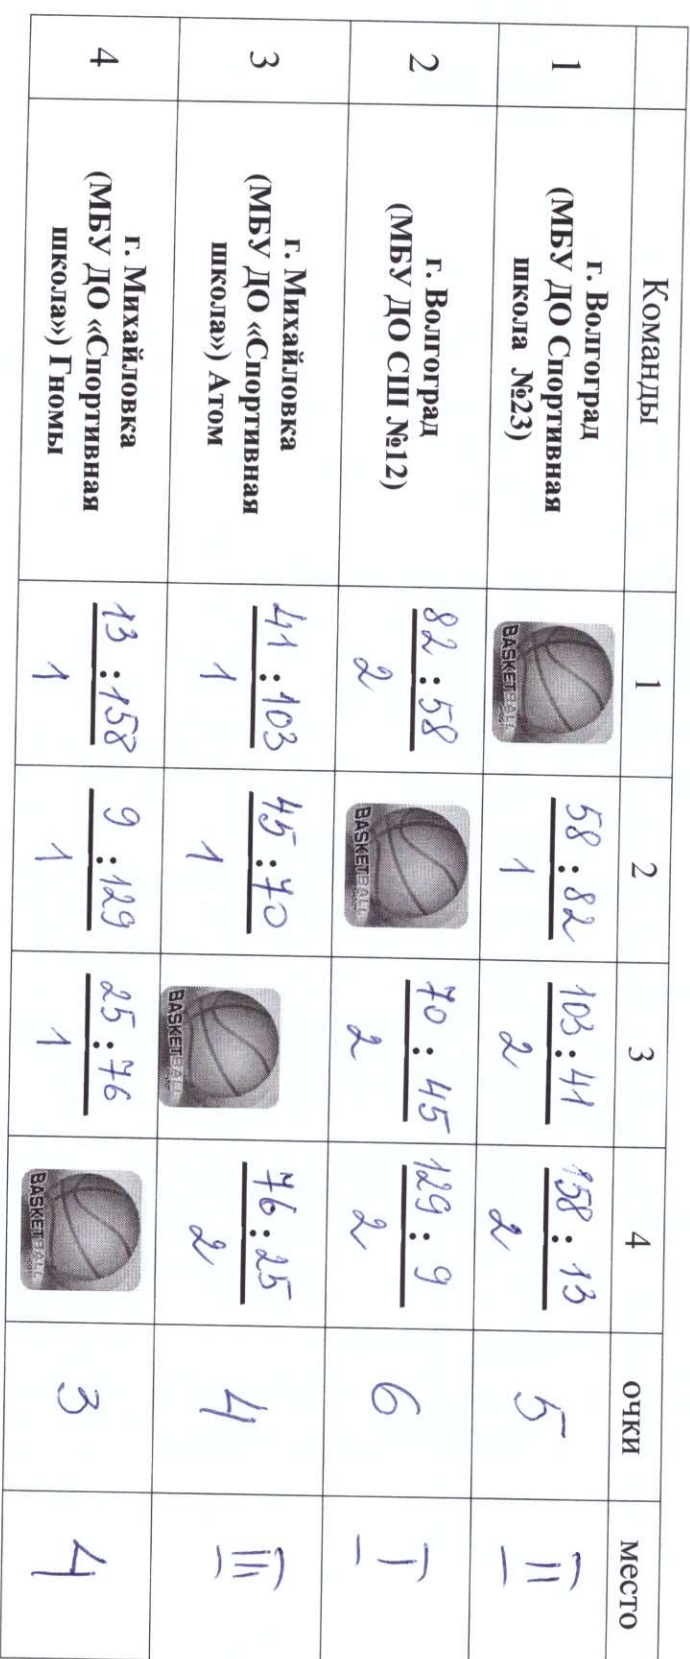 Команды 1 2 3 4 очки место
1
г. Волгоград
(МБУ ДО Спортивная
школа №23)
BASKETBALL
58 : 82
1
103 : 41
2
158 : 13
2
5
II
2
г. Волгоград
(МБУ ДО СШ №12)
82 : 58
2
BASKETBALL
70 : 45
2
129 : 9
2
6
I
3
г. Михайловка
(МБУ ДО «Спортивная
школа») Атом
41 : 103
1
45 : 70
1
BASKETBALL
76 : 25
2
4
III
4
г. Михайловка
(МБУ ДО «Спортивная
школа») Гномы
13 : 158
1
9 : 129
1
25 : 76
1
BASKETBALL
3
4